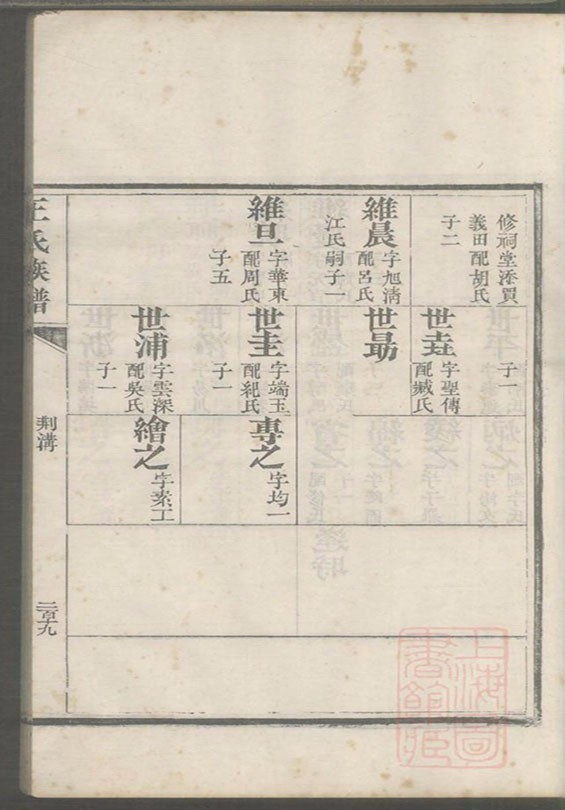 修祠堂添買
義田配胡氏
子二
維晨
字旭清
配呂氏
江氏嗣子一
維旦
字華東
配周氏
子五
子一
世垚
字聖傳
配臧氏
世勗
世圭
字端玉
配紀氏
子一
世浦
字雲深
配吳氏
子一
專之
字均一
繪之
字素工
王氏族譜
荆溝
三百九
上海圖書館藏